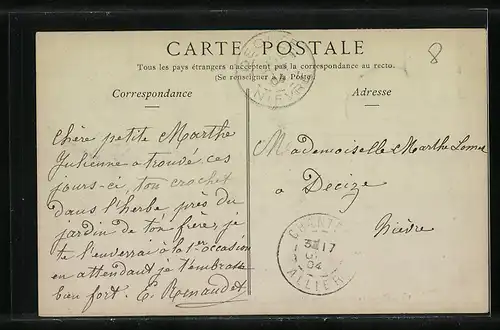 CARTE POSTALE
8
Tous les pays étrangers n'acceptent pas la correspondance au recto.
(Se renseigner à la Poste)
Correspondance
Adresse
Chère petite Marthe
Julienne a trouvé ces
jours-ci, ton crochet
dans l'herbe près du
jardin de ton frère, je
te l'enverrai à la 1ere occasion
en attendant je t'embrasse
bien fort. E. Renaudet
Mademoiselle Marthe
à Decize
Nièvre
NIÈVRE
04
CHANT
17
04
ALLIER